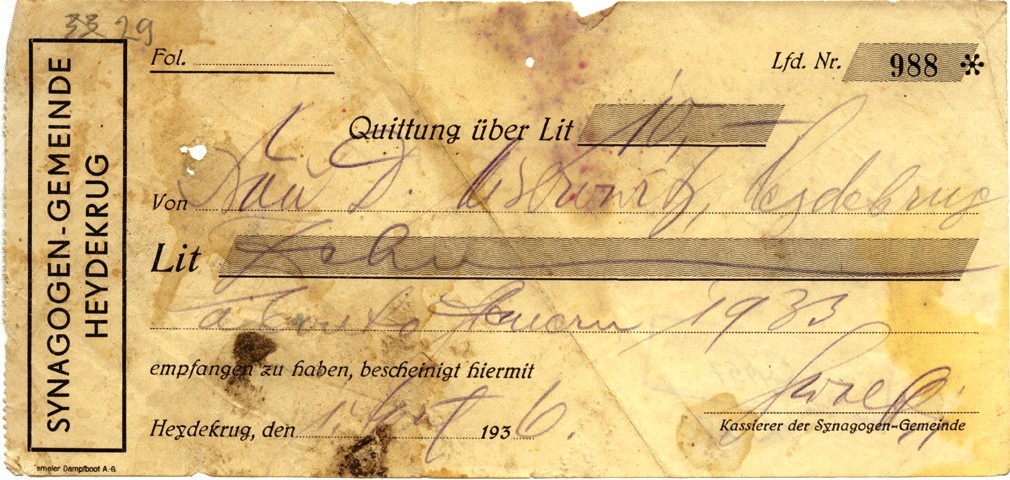 33 29
SYNAGOGEN-GEMEINDE
HEYDEKRUG
Fol.
Lfd. Nr. 988 *
Quittung über Lit 10,—
Von Frau D. Heydekrug
Lit Zehn
Steuern 1933
empfangen zu haben, bescheinigt hiermit
Heydekrug, den 1936.
Kassierer der Synagogen-Gemeinde
emeler Dampfboot A.-G.